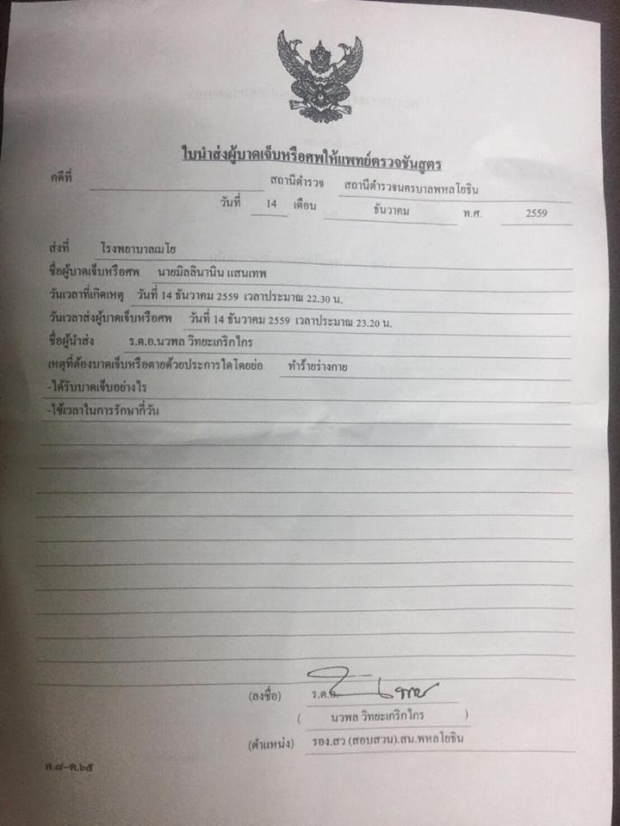 ใบนำส่งผู้บาดเจ็บหรือศพให้แพทย์ตรวจชันสูตร
คดีที่ สถานีตำรวจ สถานีตำรวจนครบาลพหลโยธิน
วันที่ 14 เดือน ธันวาคม พ.ศ. 2559
ส่งที่ โรงพยาบาลเมโย
ชื่อผู้บาดเจ็บหรือศพ นายมิลลินานิน แสนเทพ
วันเวลาที่เกิดเหตุ วันที่ 14 ธันวาคม 2559 เวลาประมาณ 22.30 น.
วันเวลาส่งผู้บาดเจ็บหรือศพ วันที่ 14 ธันวาคม 2559 เวลาประมาณ 23.20 น.
ชื่อผู้นำส่ง ร.ต.อ.นวพล วิทยะเกริกไกร
เหตุที่ต้องบาดเจ็บหรือตายด้วยประการใดโดยย่อ ทำร้ายร่างกาย
-ได้รับบาดเจ็บอย่างไร
-ใช้เวลาในการรักษากี่วัน
(ลงชื่อ) ร.ต.อ.
( นวพล วิทยะเกริกไกร )
(ตำแหน่ง) รอง.สว (สอบสวน).สน.พหลโยธิน
พ.๘-ต.๖๕